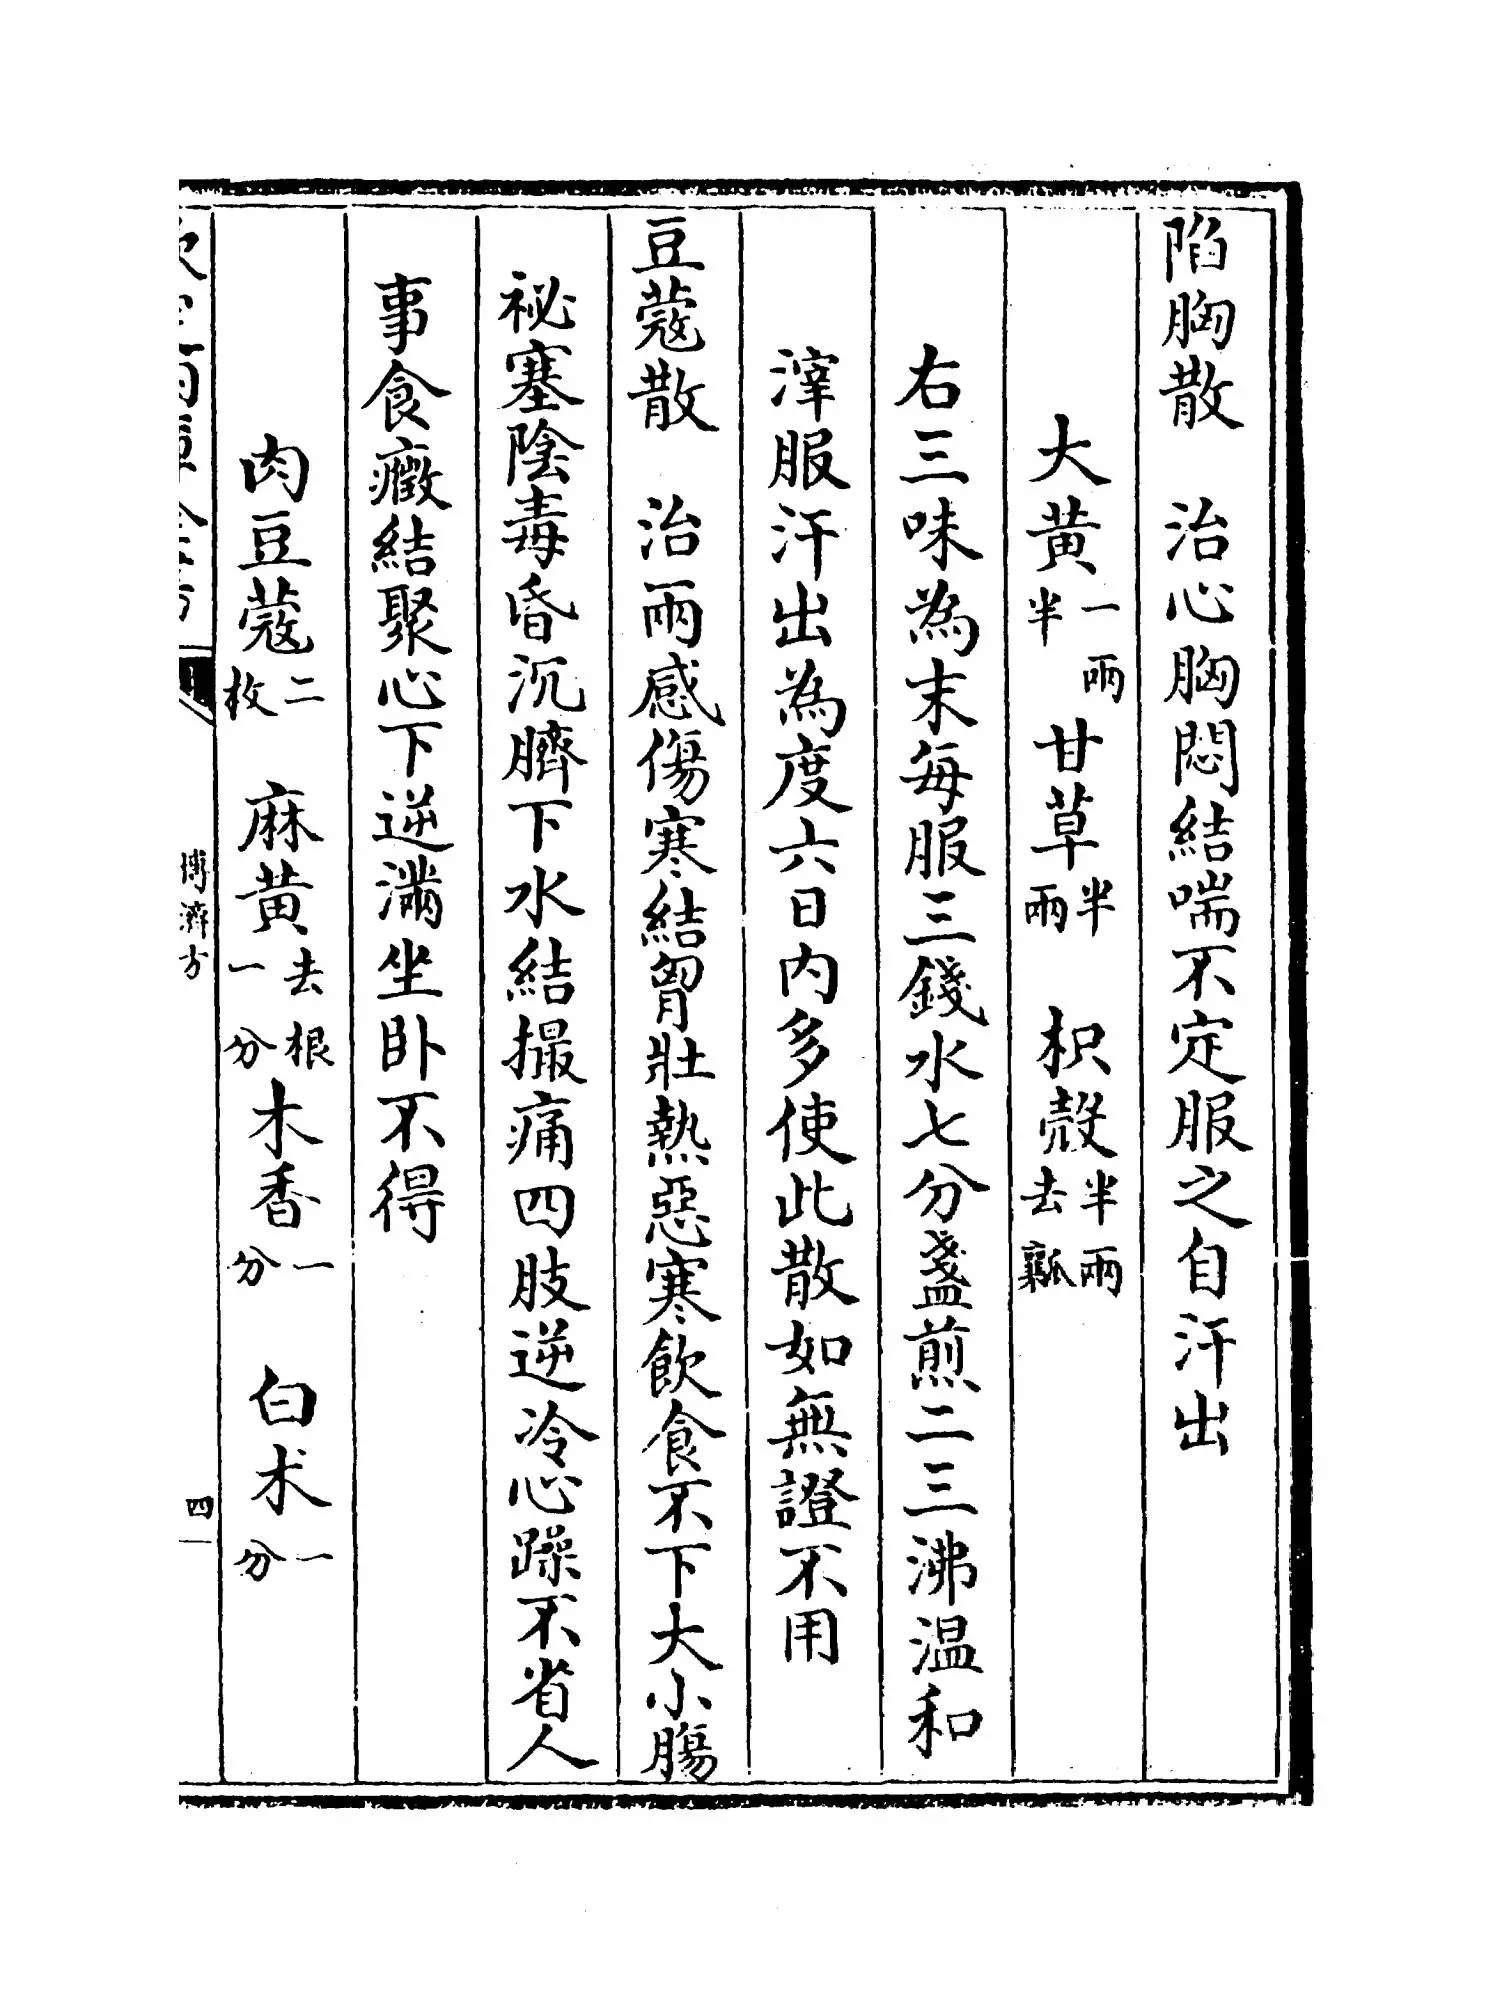 陷胸散　治心胸悶結喘不定服之自汗出
大黄一兩半　甘草半兩　枳殻半兩去瓤
右三味為末每服三錢水七分盞煎二三沸温和
滓服汗出為度六日内多使此散如無證不用
豆蔻散　治兩感傷寒結胷壯熱惡寒飲食不下大小腸
祕塞陰毒昏沉臍下水結撮痛四肢逆冷心躁不省人
事食癥結聚心下逆滿坐卧不得
肉豆蔻二枚　麻黄去根一分　木香一分　白术一分
博濟方
四